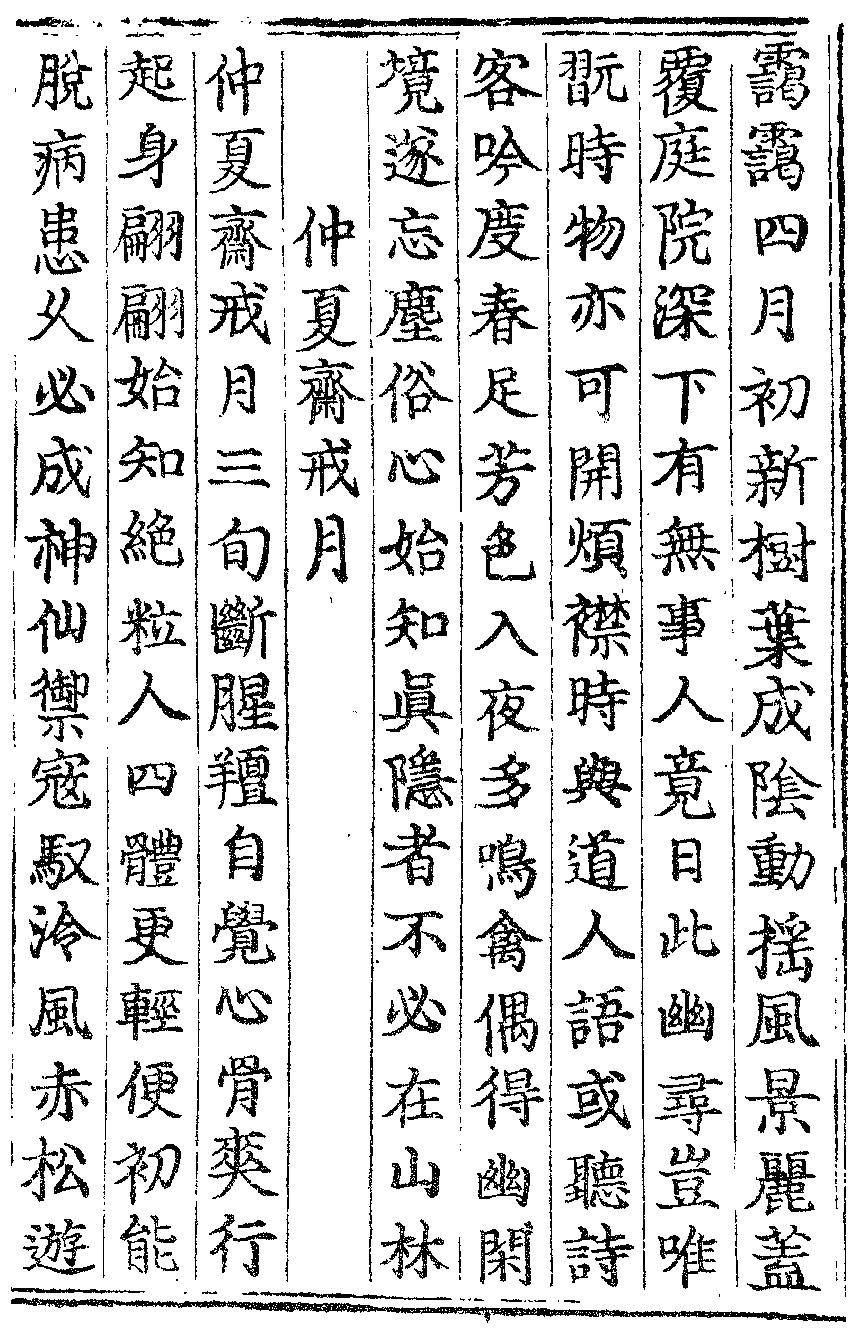 靄靄四月初新樹葉成陰動揺風景麗蓋
覆庭院深下有無事人竟日此幽尋豈唯
翫時物亦可開煩襟時與道人語或聽詩
客吟度春足芳色入夜多鳴禽偶得幽閑
境遂忘塵俗心始知眞隱者不必在山林
仲夏齋戒月
仲夏齋戒月三旬斷腥羶自覺心骨爽行
起身翩翩始知絶粒人四體更輕便初能
脫病患久必成神仙禦寇馭泠風赤松遊